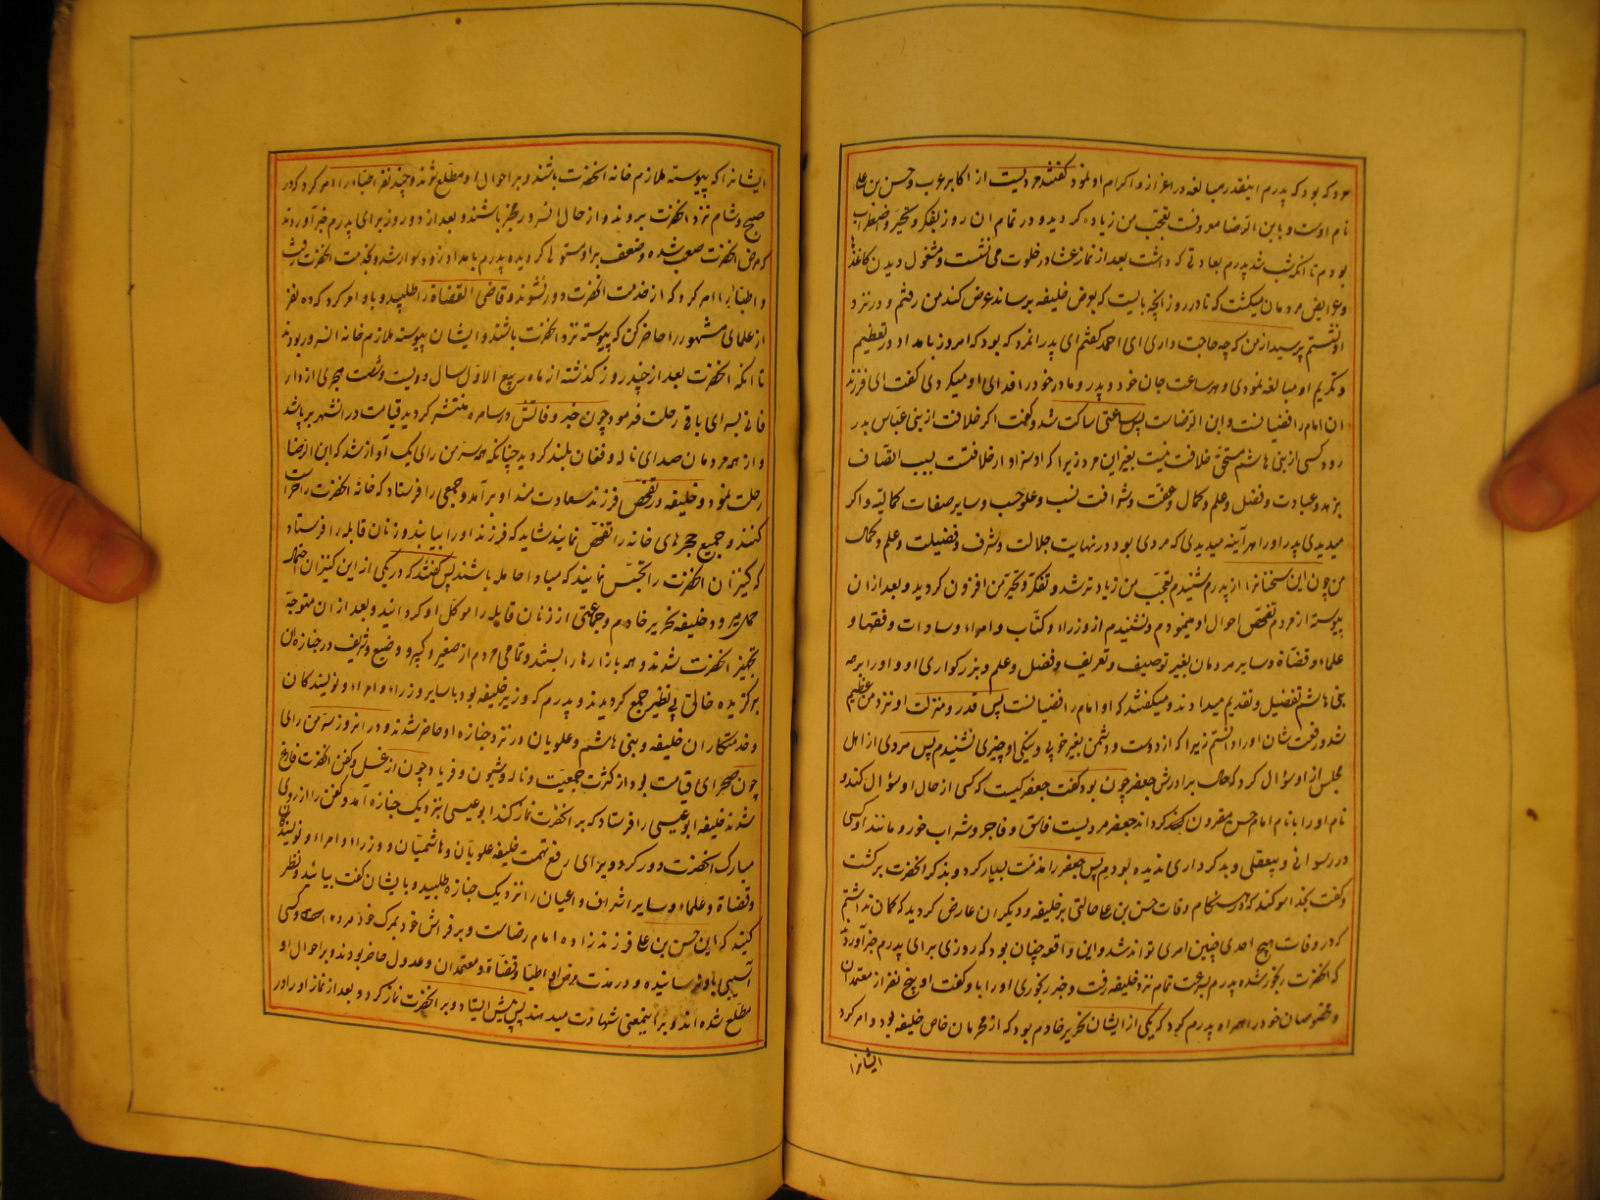 مرد که بود که پدرم اینقدر مبالغه در اعزاز و اکرام او نمود گفتند مردیست از اکابر عرب و حسن بن علی
نام اوست و بابن الرضا معروفست تعجب من زیاده کردید و در تمام ان روز بفکر و تحیر و اضطراب
بودم تا انکه شب شد پدرم بعادتی که داشت بعد از نماز عشا در خلوت می نشست و مشغول دیدن کاغذها
و عرایض مردمان میکشت که تا در روز انچه بایست که بعرض خلیفه برساند عرض کند من رفتم و در نزد
او نشستم پرسید از من که چه حاجت داری ای احمد کفتم ای پدر انمرد که بود که امروز بامداد در تعظیم
و تکریم او مبالغه نمودی و هر ساعت جان خود و پدر و مادر خود را فدای او میکردی کفت ای فرزند
ان امام رافضیانست و ابن الرضاست پس ساعتی ساکت شد و کفت اکر خلافت از بنی عباس بدر
رود کسی از بنی هاشم مستحق خلافت نیست بغیر این مرد زیرا که او سزاوار خلافتست بسبب اتصاف
بزهد و عبادت و فضل و علم و کمال و عفت و شرافت نسب و علو حسب و سایر صفات کمالیه و اکر
میدیدی پدر او را هر آینه میدیدی که مردی بود در نهایت جلالت و شرف و فضیلت و علم و کمال
من چون این سخنانرا از پدرم شنیدم تعجب من زیادتر شد و تفکر و تحیر من افزون کردید و بعد از ان
پیوسته از مردم تفحص احوال او مینمودم و نشنیدم از وزراء و کتاب و امراء و سادات و فقها و
علماء و قضاة و سایر مردمان بغیر توصیف و تعریف و فضل و علم و بزرکواری او و او را بر همه
بنی هاشم تفضیل و تقدیم میدادند و میکفتند که او امام رافضیانست پس قدر و منزلت او نزد من عظیم
شد و رفعت شان او را دانستم زیرا که از دوست و دشمن بغیر خوبی و نیکی او چیزی نشنیدم پس مردی از اهل
مجلس از او سؤال کرد که حال برادرش جعفر چون بود کفت جعفر کیست که کسی از حال او سؤال کند و
نام او را با نام امام حسن مقرون کرداند جعفر مردیست فاسق و فاجر و شراب خور و مانند او کسی
در رسوائی و بیعقلی و بدکرداری ندیده بودم پس جعفر را مذمت بسیار کرد و بذکر انحضرت برکشت
و کفت بخدا سوکند که در هنکام وفات حسن بن علی حالتی بر خلیفه و دیکران عارض کردید که کمان نداشتم
که در وفات هیچ احدی چنین امری تواند شد و این واقعه چنان بود که روزی برای پدرم خبر آوردند
که انحضرت رنجور شده پدرم بسرعت تمام نزد خلیفه رفت و خبر رنجوری او را باو کفت او پنج نفر از معتمدان
و مخصوصان خود را همراه پدرم کرد که یکی از ایشان نحریر خادم بود که از محرمان خاص خلیفه بود و امر کرد
ایشانرا
ایشانرا که پیوسته ملازم خانه انحضرت باشند و بر احوال او مطلع شوند و چند نفر اطبا را امر کرد که در
صبح و شام نزد انحضرت بروند و از حال انسرور مخبر باشند و بعد از دو روز برای پدرم خبر آوردند
که مرض انحضرت صعب شده و ضعف بر او مستولی کردیده پدرم بامداد زود سوار شده بخدمت انحضرت رفت
و اطبا را امر کرد که از خدمت انحضرت دور نشوند و قاضی القضاة را طلبید و باو امر کرد که ده نفر
از علمای مشهور را حاضر کن که پیوسته نزد انحضرت باشند و ایشان پیوسته ملازم خانه انسرور بودند
تا انکه انحضرت بعد از چند روز کذشته از ماه ربیع الاول سال دویست و شصت هجری از دار
فانی بسرای باقی رحلت فرمود چون خبر وفاتش در سامره منتشر کردید قیامت در انشهر برپا شد
و از همه مردمان صدای ناله و فغان بلند کردید چنانکه همه سر من رای یک آواز شد که ابن الرضا
رحلت نمود و خلیفه در تفحص فرزند سعادتمند او برآمد و جمعی را فرستاد که خانه انحضرت را حراست
کنند و جمیع حجرهای خانه را تفحص نمایند شاید که فرزند او را بیابند و زنان قابله را فرستاد
که کنیزان انحضرت را تجسس نمایند که مبادا حامله باشند پس کفتند که در یکی از این کنیزان احتمال
حمل میرود خلیفه نحریر خادم و جماعتی از زنان قابله را موکل او کردانید و بعد از ان متوجه
تجهیز انحضرت شدند و همه بازارها را بستند و تمامی مردم از صغیر و کبیر و وضیع و شریف در جنازه ان
برکزیده خالق بی نظیر جمع کردیدند و پدرم که وزیر خلیفه بود با سایر وزراء و امراء و نویسندکان
و خدمتکاران خلیفه و بنی هاشم و علویان در نزد جنازه او حاضر شدند و در انروز سر من رای
چون صحرای قیامت بود از کثرت جمعیت و ناله و شیون و فریاد چون از غسل و کفن انحضرت فارغ
شدند خلیفه ابو عیسی را فرستاد که بر انحضرت نماز کند ابو عیسی بنزدیک جنازه آمد و کفن را از روی
مبارک انحضرت دور کرد و برای رفع تهمت خلیفه علویان و هاشمیان و وزراء و امراء و نویسندکان
و قضاة و علماء و سایر اشراف و اعیان را نزدیک جنازه طلبید و بایشان کفت بیائید و نظر
کنید که این حسن بن علی فرزند زاده امام رضاست و بر فراش خود بمرک خود مرده است و کسی
آسیبی باو نرسانیده و در مدت مرض او اطبا و قضاة و معتمدان و عدول حاضر بودند و بر احوال او
مطلع شده اند و بر اینمعنی شهادت میدهند پس پیش ایستاد و بر انحضرت نماز کرد و بعد از نماز او را در